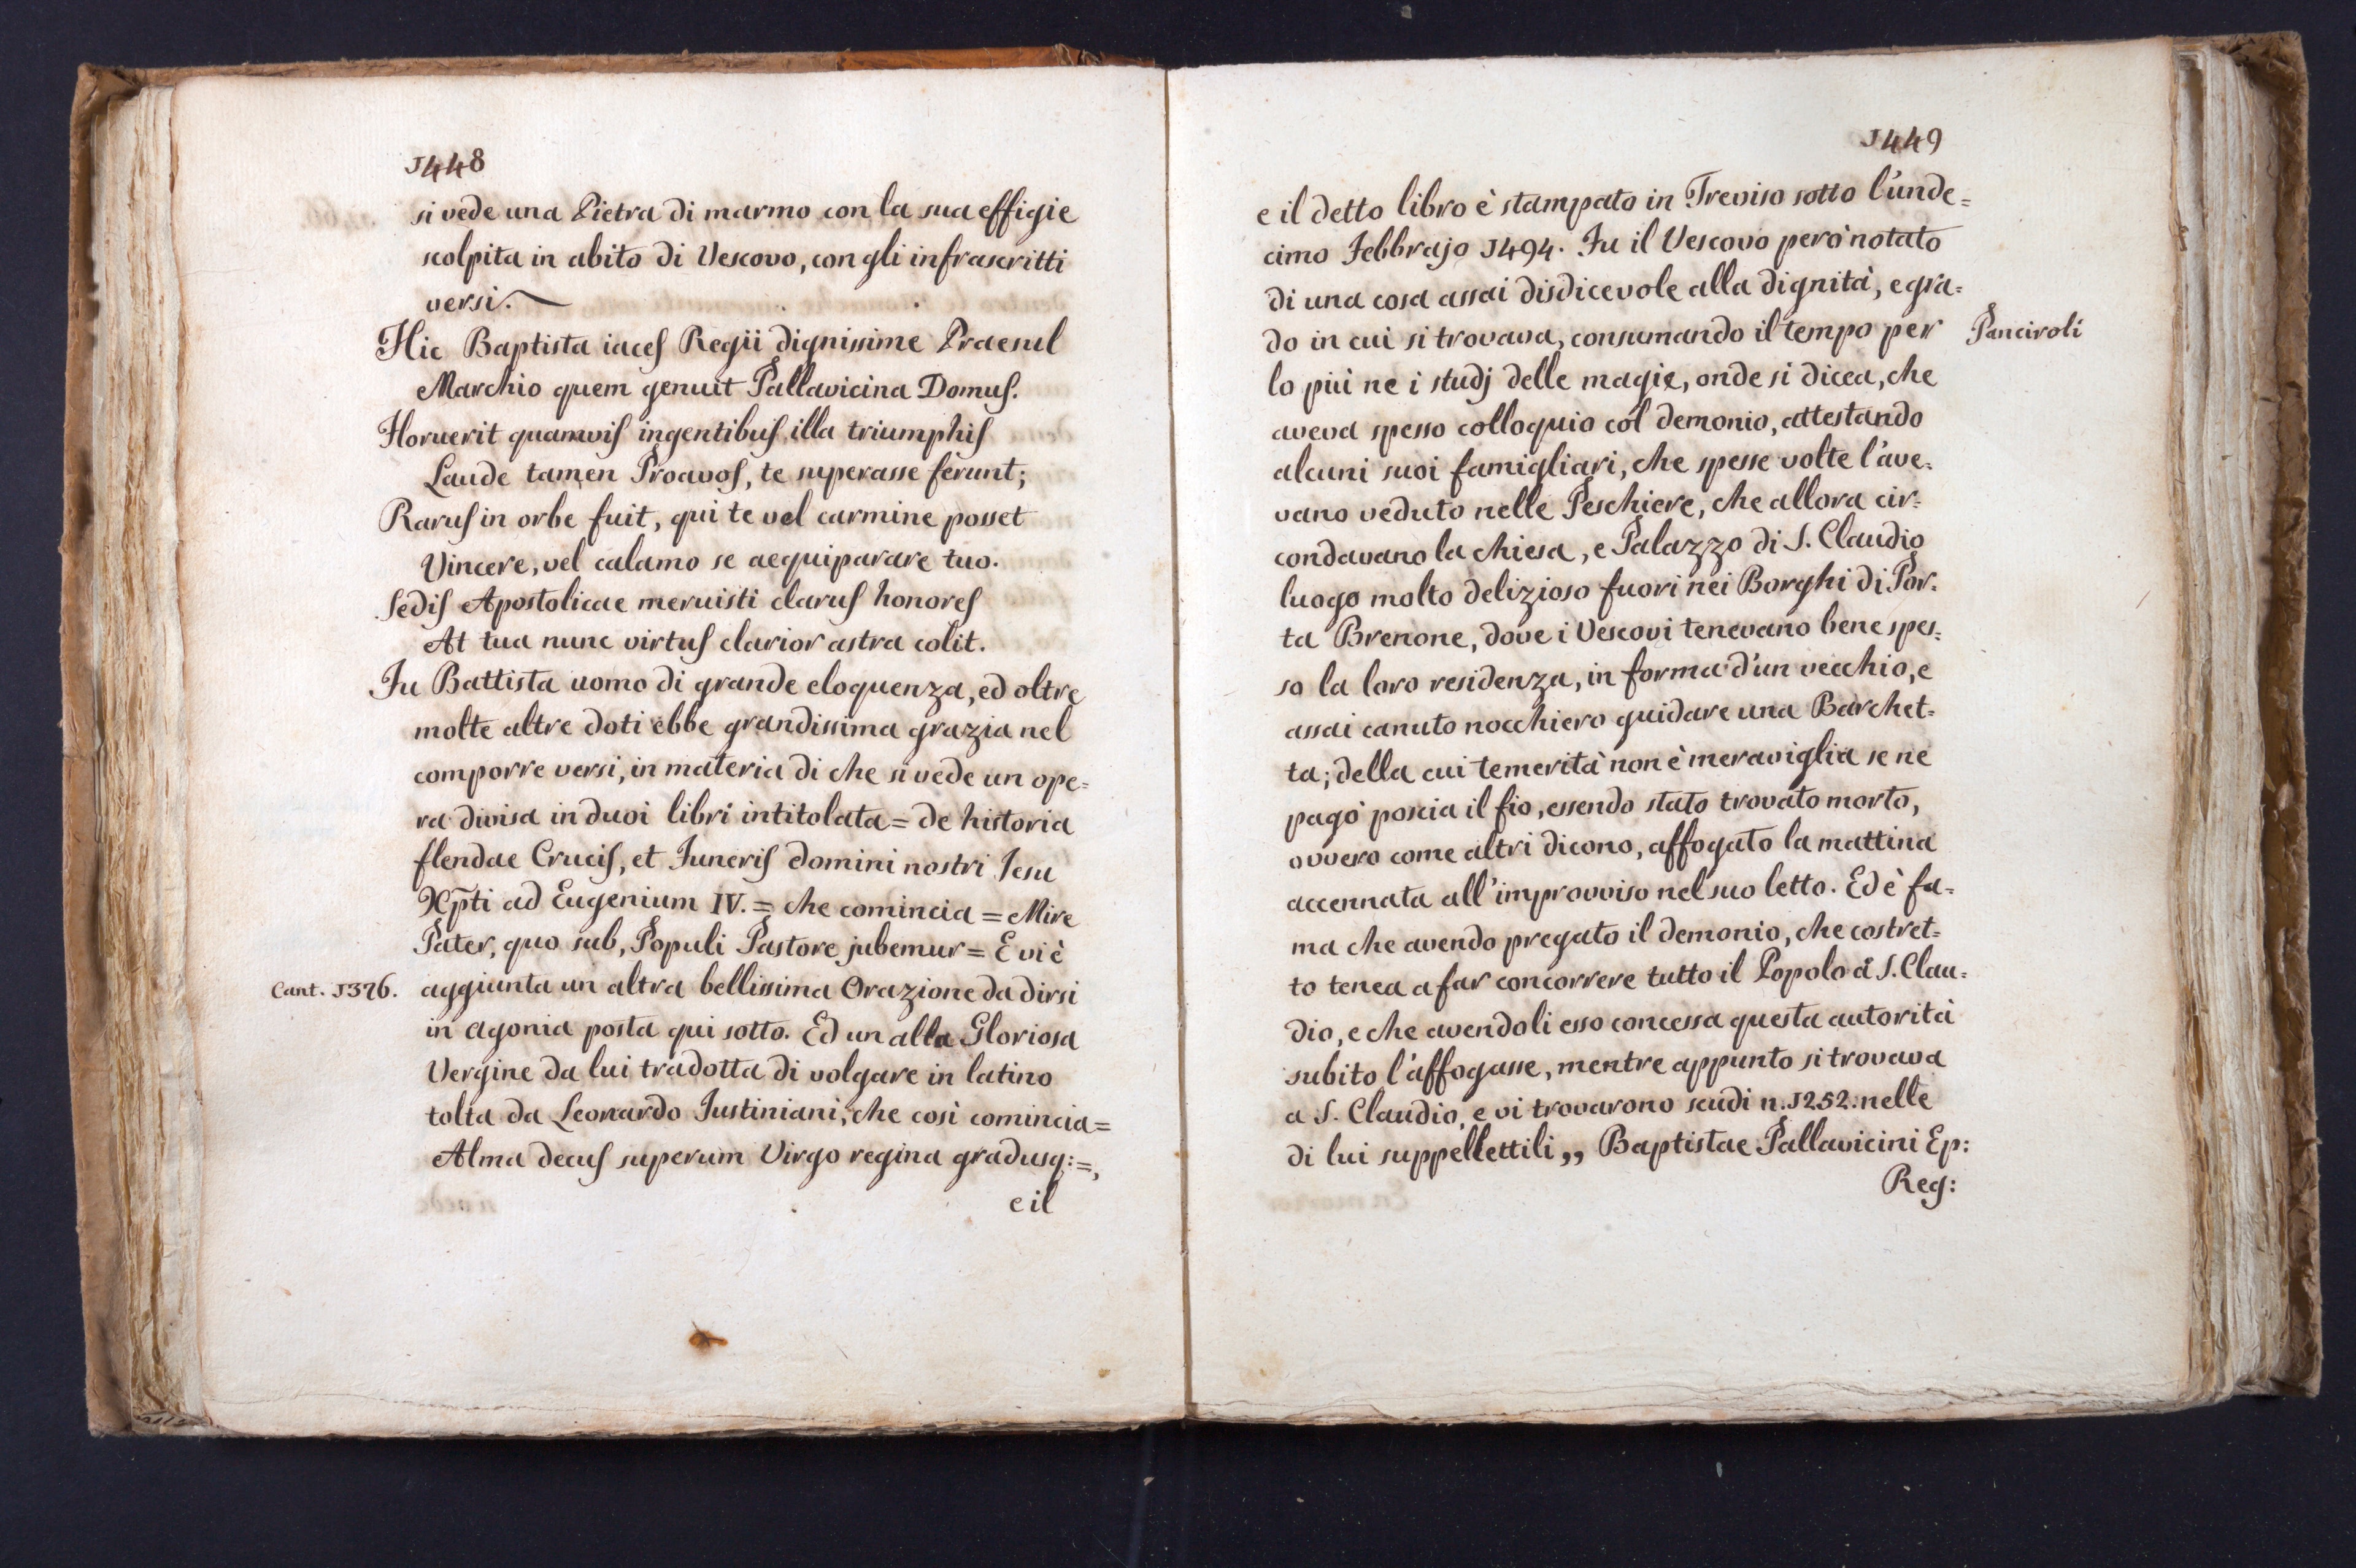 1448
si vede una Pietra di marmo con la sua effigie
scolpita in abito di Vescovo, con gli infrascritti
versi.
Hic Baptista iaces Regii dignissime Praesul
Marchio quem genuit Pallavicina Domus.
Floruerit quamvis ingentibus illa triumphis
Laude tamen Proavos, te superasse ferunt;
Rarus in orbe fuit, qui te vel carmine posset
Vincere, vel calamo se aequiparare tuo.
Sedis Apostolicae meruisti clarus honores
At tua nunc virtus clarior astra colit.
Fu Battista uomo di grande eloquenza, ed oltre
molte altre doti ebbe grandissima grazia nel
comporre versi, in materia di che si vede un ope=
ra divisa in duoi libri intitolata = de historia
flendae Crucis, et Funeris domini nostri Iesu
Xp̄ti ad Eugenium IV. = che comincia = Mire
Pater, quo sub, Populi Pastore jubemur = E vi è
Cant. 1376. aggiunta un altra bellissima Orazione da dirsi
in agonia posta qui sotto. Ed un alla Gloriosa
Vergine da lui tradotta di volgare in latino
tolta da Leonardo Iustiniani, che così comincia =
Alma decus superum Virgo regina gradusq: =,
e il
1449
e il detto libro è stampato in Treviso sotto l'unde=
cimo Febbrajo 1494. Fu il Vescovo però notato
di una cosa assai disdicevole alla dignità, e gra=
do in cui si trovava, consumando il tempo per Panciroli
lo più ne i studj delle magie, onde si dicea, che
aveva spesso colloquio col demonio, attestando
alcuni suoi famigliari, che spesse volte l'ave=
vano veduto nelle Peschiere, che allora cir=
condavano la chiesa, e Palazzo di S. Claudio
luogo molto delizioso fuori nei Borghi di Por=
ta Brenone, dove i Vescovi tenevano bene spes=
so la loro residenza, in forma d'un vecchio, e
assai canuto nocchiero guidare una Barchet=
ta; della cui temerità non è meraviglia se ne
pagò poscia il fio, essendo stato trovato morto,
ovvero come altri dicono, affogato la mattina
accennata all'improvviso nel suo letto. Ed è fa=
ma che avendo pregato il demonio, che costret=
to tenea a far concorrere tutto il Popolo a S. Clau=
dio, e che avendoli esso concessa questa autorità
subito l'affogasse, mentre appunto si trovava
a S. Claudio, e vi trovarono scudi n. 1252. nelle
di lui suppellettili „ Baptistae Pallavicini Ep:
Reg: